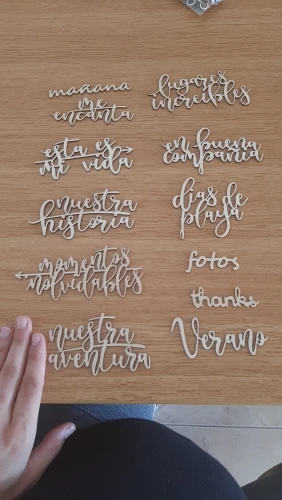 mañana
me
encanta
lugares
increíbles
esta es
mi vida
en buena
compañía
nuestra
historia
días de
playa
momentos
inolvidables
fotos
thanks
nuestra
aventura
Verano